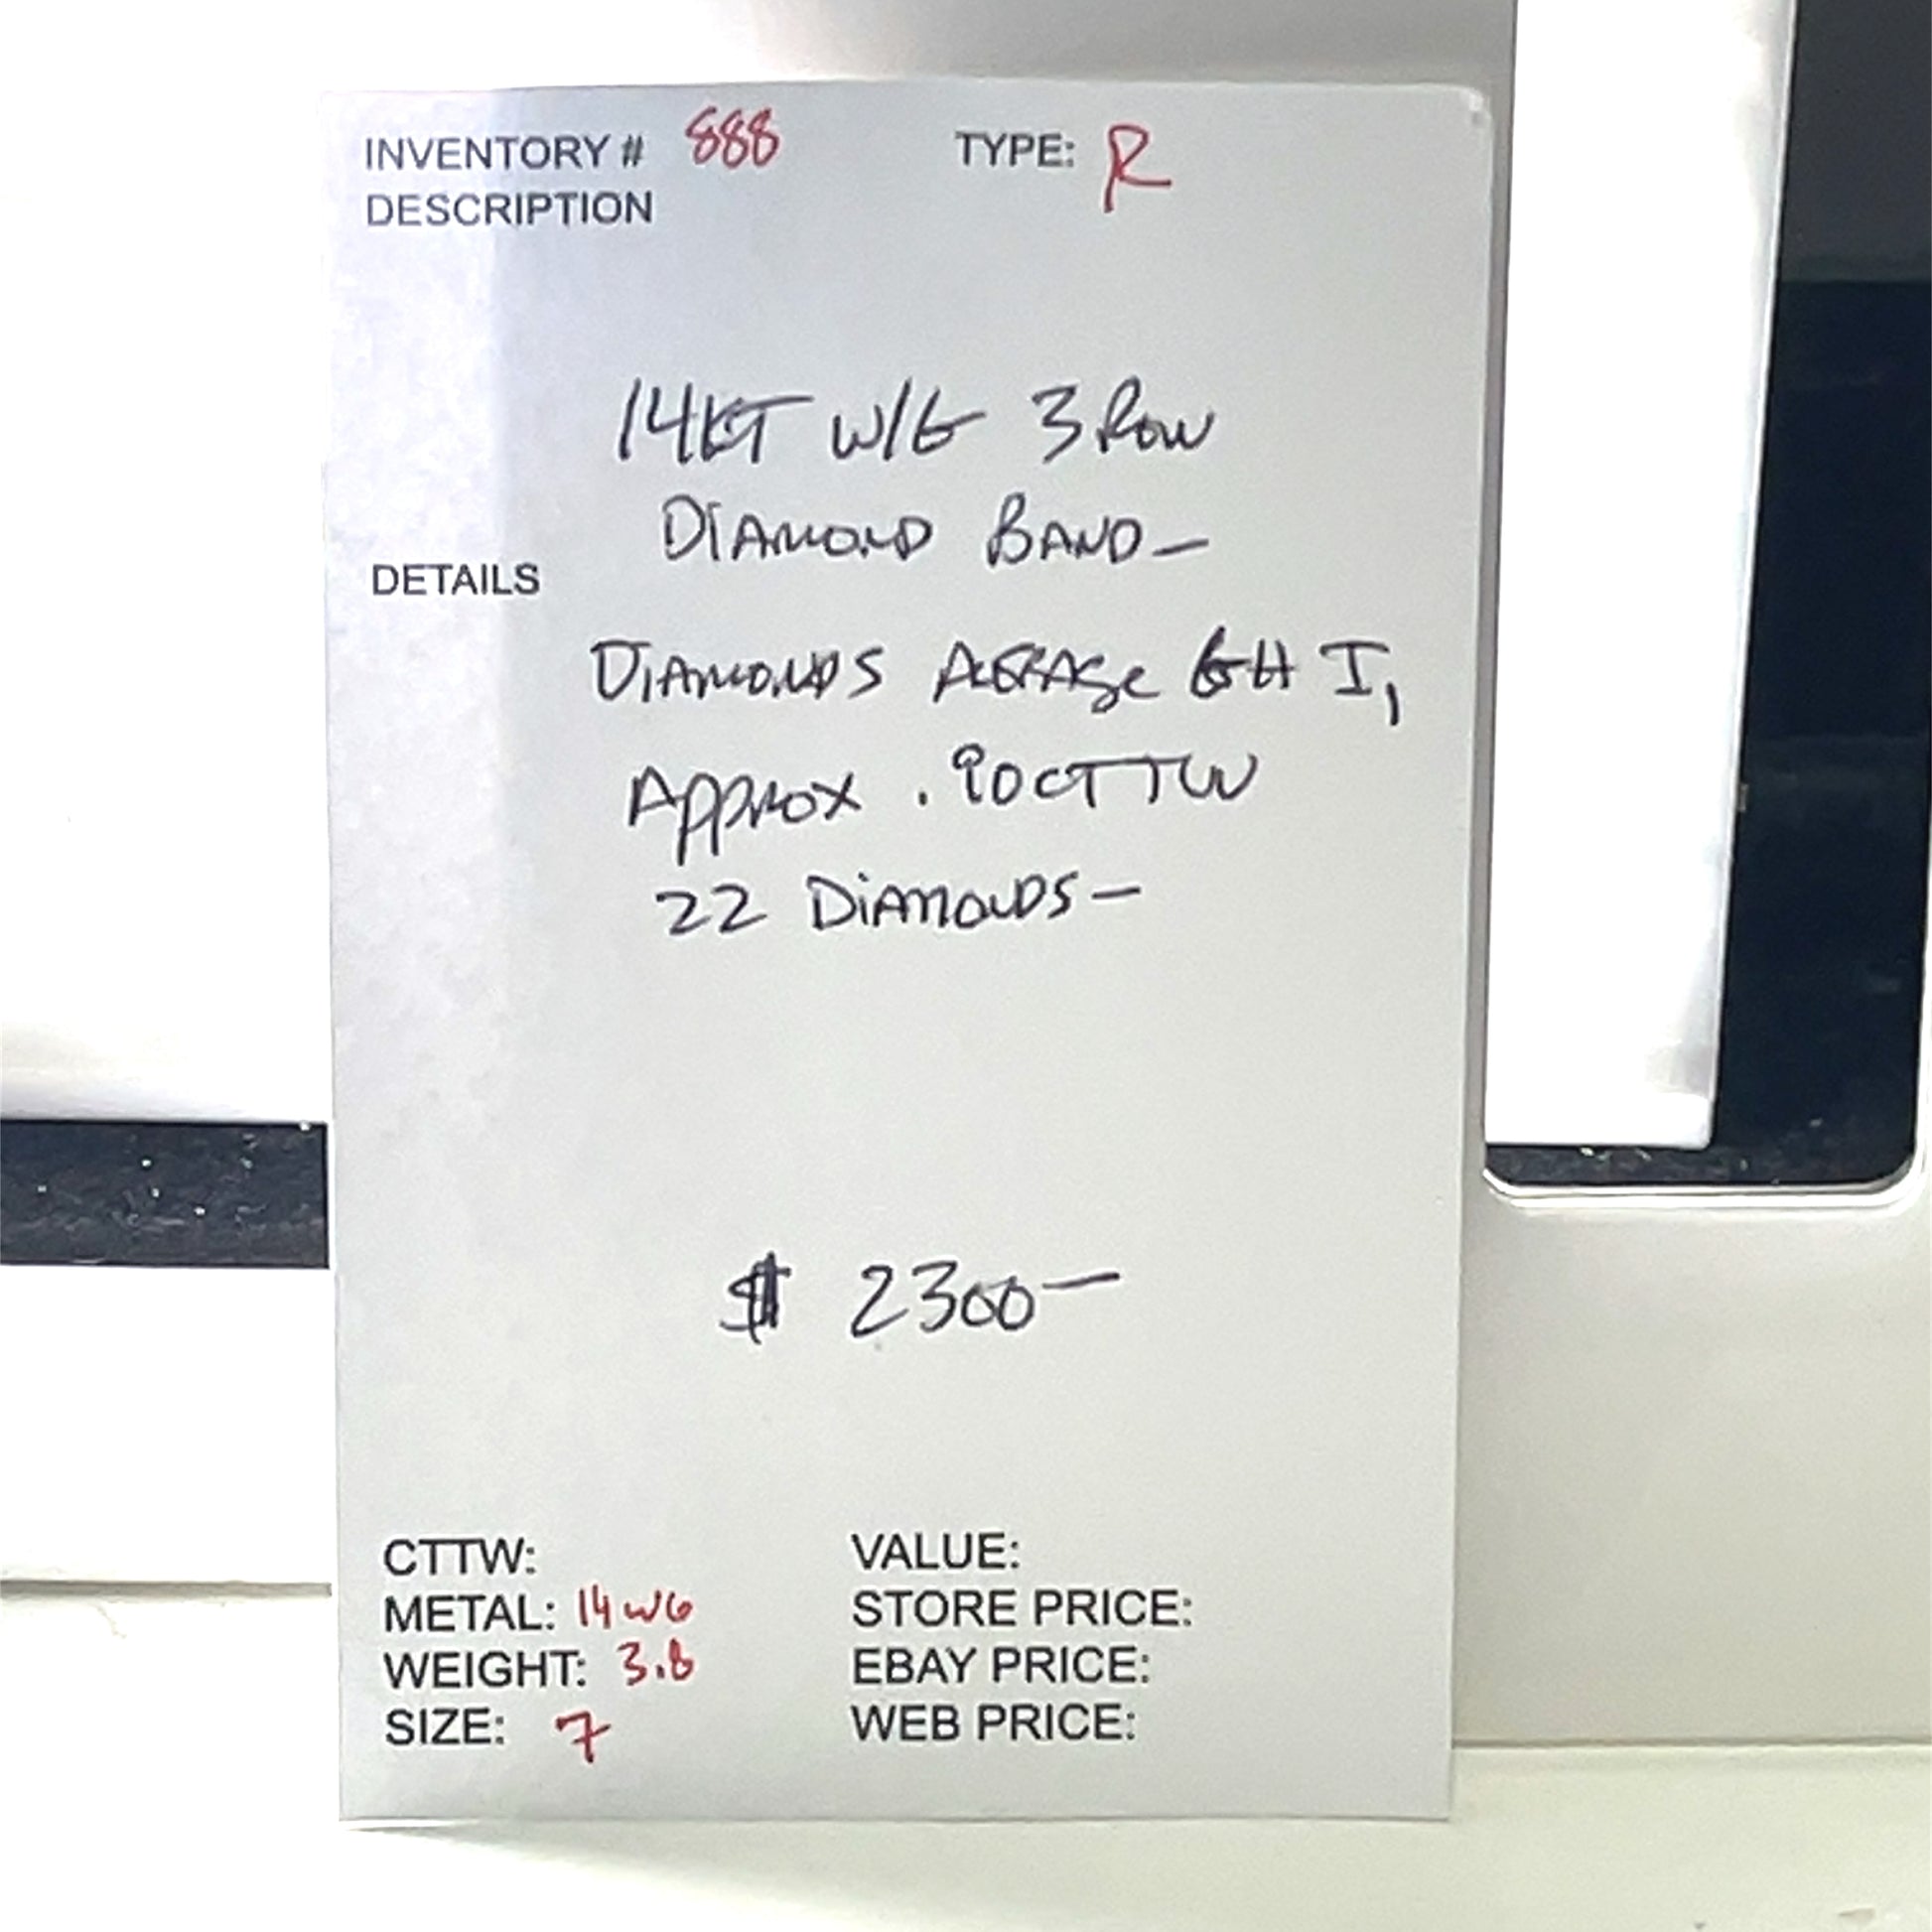 INVENTORY # 888 TYPE: R
DESCRIPTION
14KT W/G 3 Row
DIAMOND BAND-
DETAILS
DIAMONDS AVERAGE GH I1
Approx .90CTTW
22 DiAMONDS-
$ 2300-
CTTW: VALUE:
METAL: 14 WG STORE PRICE:
WEIGHT: 3.8 EBAY PRICE:
SIZE: 7 WEB PRICE: